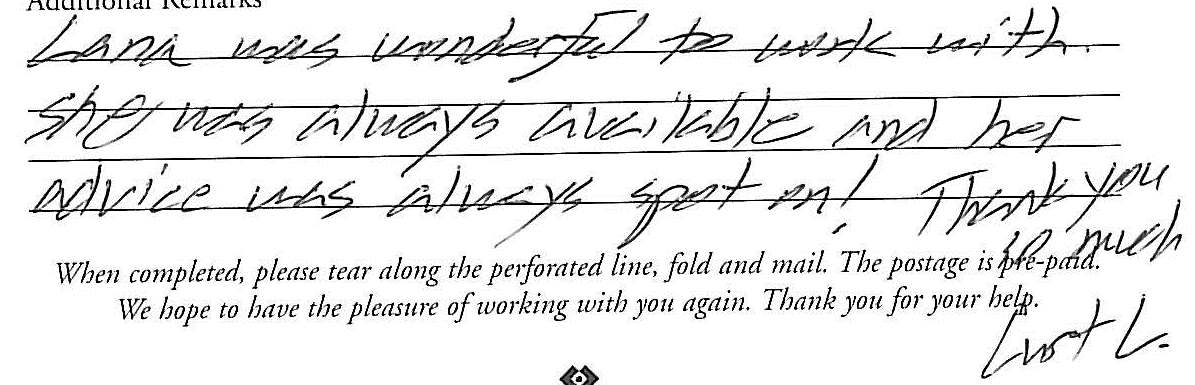 Additional Remarks
Lana was wonderful to work with.
She was always available and her
advice was always spot on! Thank you
so much
When completed, please tear along the perforated line, fold and mail. The postage is pre-paid.
We hope to have the pleasure of working with you again. Thank you for your help.
Curt L.